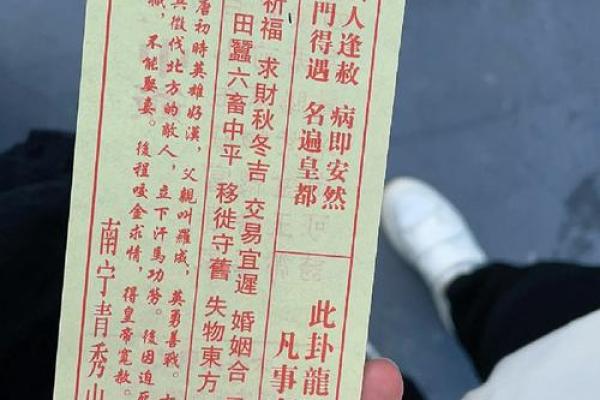 人逢赦 病即安然
門得遇 名遍皇都
此卦龍
凡事
祈福 求財秋冬吉 交易宜遲 婚姻合
田蠶六畜中平 移徙守舊 失物東方
唐初時英雄好漢，父親叫羅成，英勇善戰。
徵伐北方的敵人，立下汗馬功勞。後因迫死
，不能娶妻。後程咬金求情，得皇帝寬赦。
南宁青秀山